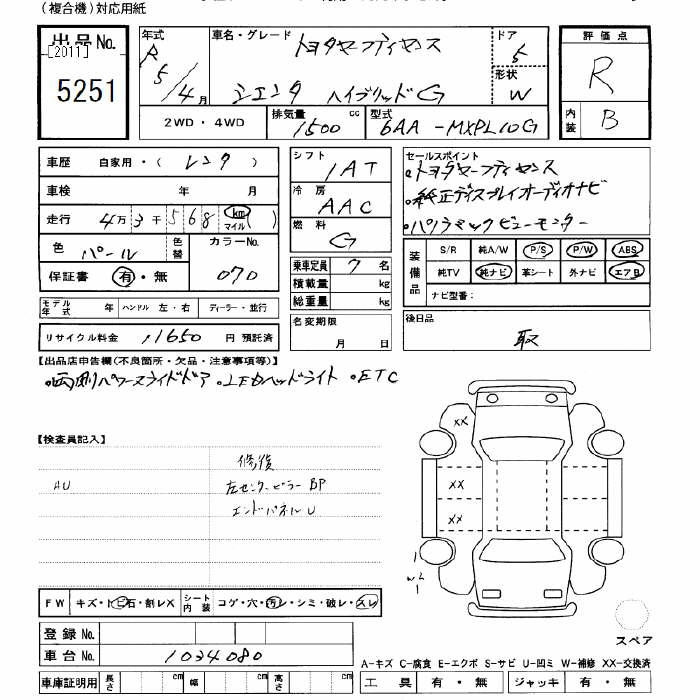 (複合機)対応用紙
出品No.
[2011]
5251
年式 R5/4月
車名・グレード トヨタセーフティセンス
シエンタ ハイブリッドG
ドア 5
形状 W
評価点
R
内装 B
2WD・4WD
排気量 1500 cc
型式 6AA-MXPL10G
車歴 自家用・(レンタ)
車検 年 月
走行 4万3千568 km マイル ( )
色 パール 色替
カラーNo. 070
保証書 有・無
モデル年式 年 ハンドル 左・右 ディーラー・並行
リサイクル料金 11650 円 預託済
シフト 1AT
冷房 AAC
燃料 G
乗車定員 7 名
積載量 kg
総重量 kg
名変期限
月 日
セールスポイント
・トヨタセーフティセンス
・純正ディスプレイオーディオナビ
・パノラミックビューモニター
装備品
S/R 純A/W P/S P/W ABS
純TV 純ナビ 革シート 外ナビ エアB
ナビ型番:
後日品
取
【出品店申告欄(不良箇所・欠品・注意事項等)】
・両側パワースライドドア ・LEDヘッドライト ・ETC
【検査員記入】
修復
AU 左センターピラー BP
エンドパネル U
XX
XX
XX
FW キズ・トビ石・割レX シート内装 コゲ・穴・汚レ・シミ・破レ・スレ
登録No.
車台No. 1034080
車庫証明用 長さ cm 幅 cm 高さ cm
スペア
A-キズ C-腐食 E-エクボ S-サビ U-凹ミ W-補修 XX-交換済
工具 有・無 ジャッキ 有・無